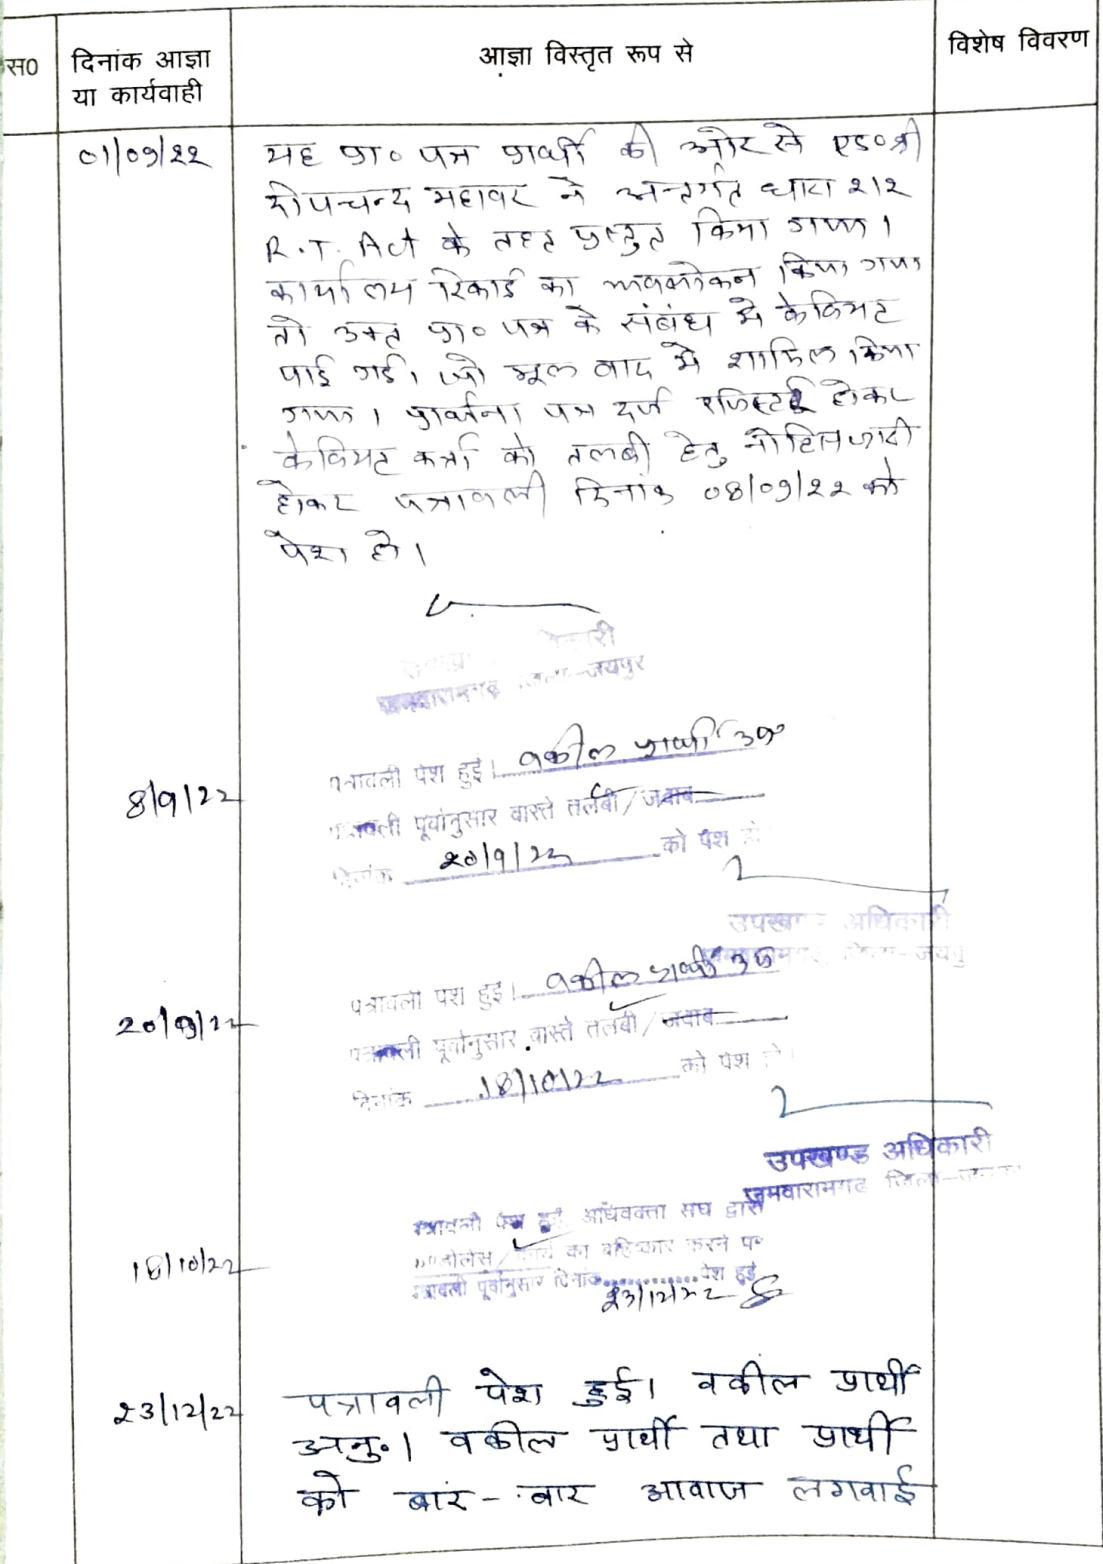 स०
दिनांक आज्ञा
या कार्यवाही
आज्ञा विस्तृत रूप से
विशेष विवरण
01/09/22
यह प्रा० पत्र प्रार्थी की ओर से एड० श्री
दीपचन्द महावर ने अन्तर्गत धारा 212
R.T. Act के तहत प्रस्तुत किया गया।
कार्यालय रिकार्ड का अवलोकन किया गया
तो उक्त प्रा० पत्र के संबंध मे केवियट
पाई गई। जो मूल वाद मे शामिल किया
गया। प्रार्थना पत्र दर्ज रजिस्टर होकर
केवियट कर्ता को तलबी हेतु नोटिस जारी
होकर पत्रावली दिनांक 08/09/22 को
पेश हो।
जमवारामगढ जिला-जयपुर
8/9/22
पत्रावली पेश हुई। वकील प्रार्थी उप०
पत्रावली पूर्वानुसार वास्ते तलबी/जवाब
दिनांक 20/9/22 को पेश हो
उपखण्ड अधिकारी
जमवारामगढ जिला-जयपु
20/9/22
पत्रावली पेश हुई। वकील प्रार्थी उप
पत्रावली पूर्वानुसार वास्ते तलबी/जवाब
दिनांक 18/10/22 को पेश हो।
उपखण्ड अधिकारी
जमवारामगढ जिला-
18/10/22
पत्रावली पेश हुई अधिवक्ता संघ द्वारा
कार्य का बहिष्कार करने पर
पत्रावली पूर्वानुसार दिनांक............पेश हुई
23/12/22
23/12/22
पत्रावली पेश हुई। वकील प्रार्थी
अनु०। वकील प्रार्थी तथा प्रार्थी
को बार-बार आवाज लगवाई